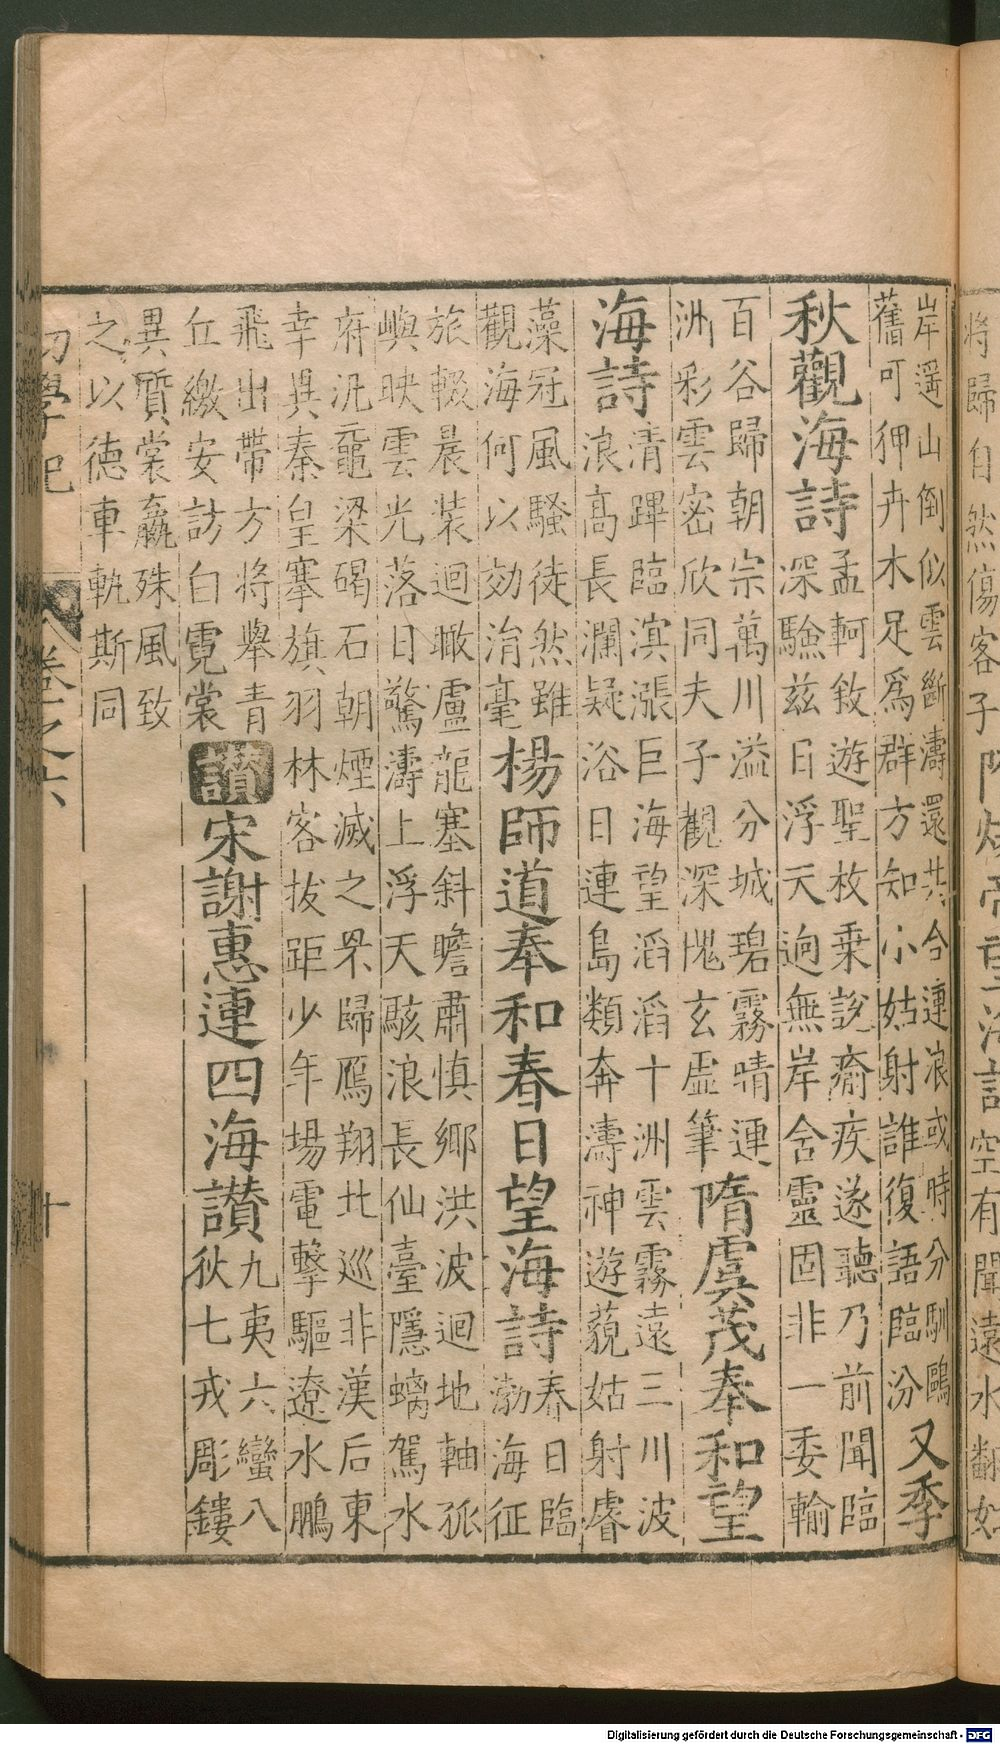 將歸自然傷客子隋煬帝望海詩空有聞遠水翻如
岸遥山倒似雲斷濤還共合連浪或時分馴鷗
舊可狎卉木足爲群方知小姑射誰復語臨汾
又季
秋觀海詩
孟軻敘遊聖枚乗說癒疾遂聽乃前聞臨
深驗兹日浮天逈無岸含靈固非一委輸
百谷歸朝宗萬川溢分城碧霧晴連
洲彩雲密欣同夫子觀深愧玄虛筆
隋虞茂奉和望
海詩
清蹕臨溟漲巨海望滔滔十洲雲霧遠三川波
浪髙長瀾疑浴日連島類奔濤神遊藐姑射睿
藻冠風騷徒然雖
觀海何以効涓毫
楊師道奉和春日望海詩
春日臨
渤海征
旅輟晨装迴瞰盧龍塞斜瞻肅慎鄉洪波迴地軸孤
嶼映雲光落日驚濤上浮天駭浪長仙臺隱螭駕水
府汎黿梁碣石朝煙滅之罘歸鴈翔北巡非漢后東
幸異秦皇搴旗羽林客拔距少年場電擊驅遼水鵬
飛出帶方將舉青
丘繳安訪白霓裳
讃
宋謝惠連四海讃
九夷六蠻八
狄七戎彫鏤
異質裳羸殊風致
之以德車軌斯同
初學記 卷之六 十
Digitalisierung gefördert durch die Deutsche Forschungsgemeinschaft - DFG